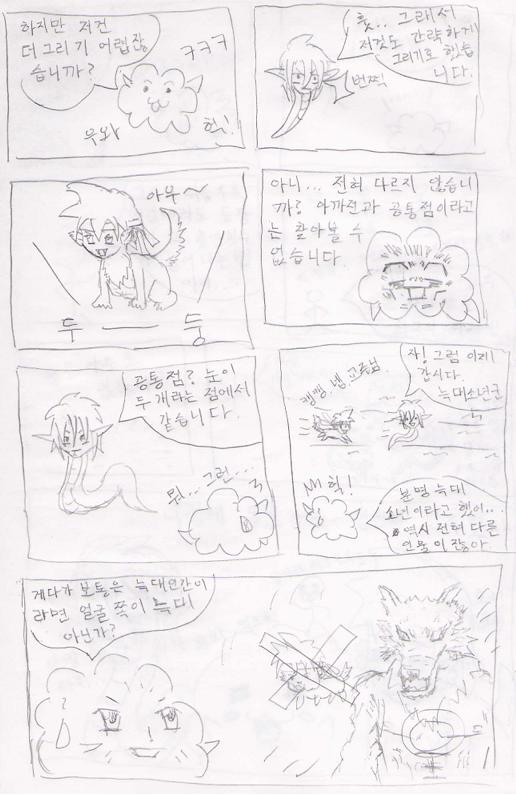 하지만 저건
더 그리기 어렵잖
습니까?
ㅋㅋㅋ
우와
헉!
훗.. 그래서
저것도 간략하게
그리기로 했습
니다.
번쩍
아우~
두 ー 둥
아니... 전혀 다르지 않습니
까? 아까전과 공통점이라고
는 찾아볼 수
없습니다.
공통점? 눈이
두 개라는 점에서
같습니다.
뭐... 그런...
자! 그럼 이제
갑시다.
늑대소년군
깽깽. 넵, 교수님.
헉!
분명 늑대
소년이라고 했어..
역시 전혀 다른
인물이잖아.
게다가 보통은 늑대인간이
라면 얼굴 쪽이 늑대
아닌가?